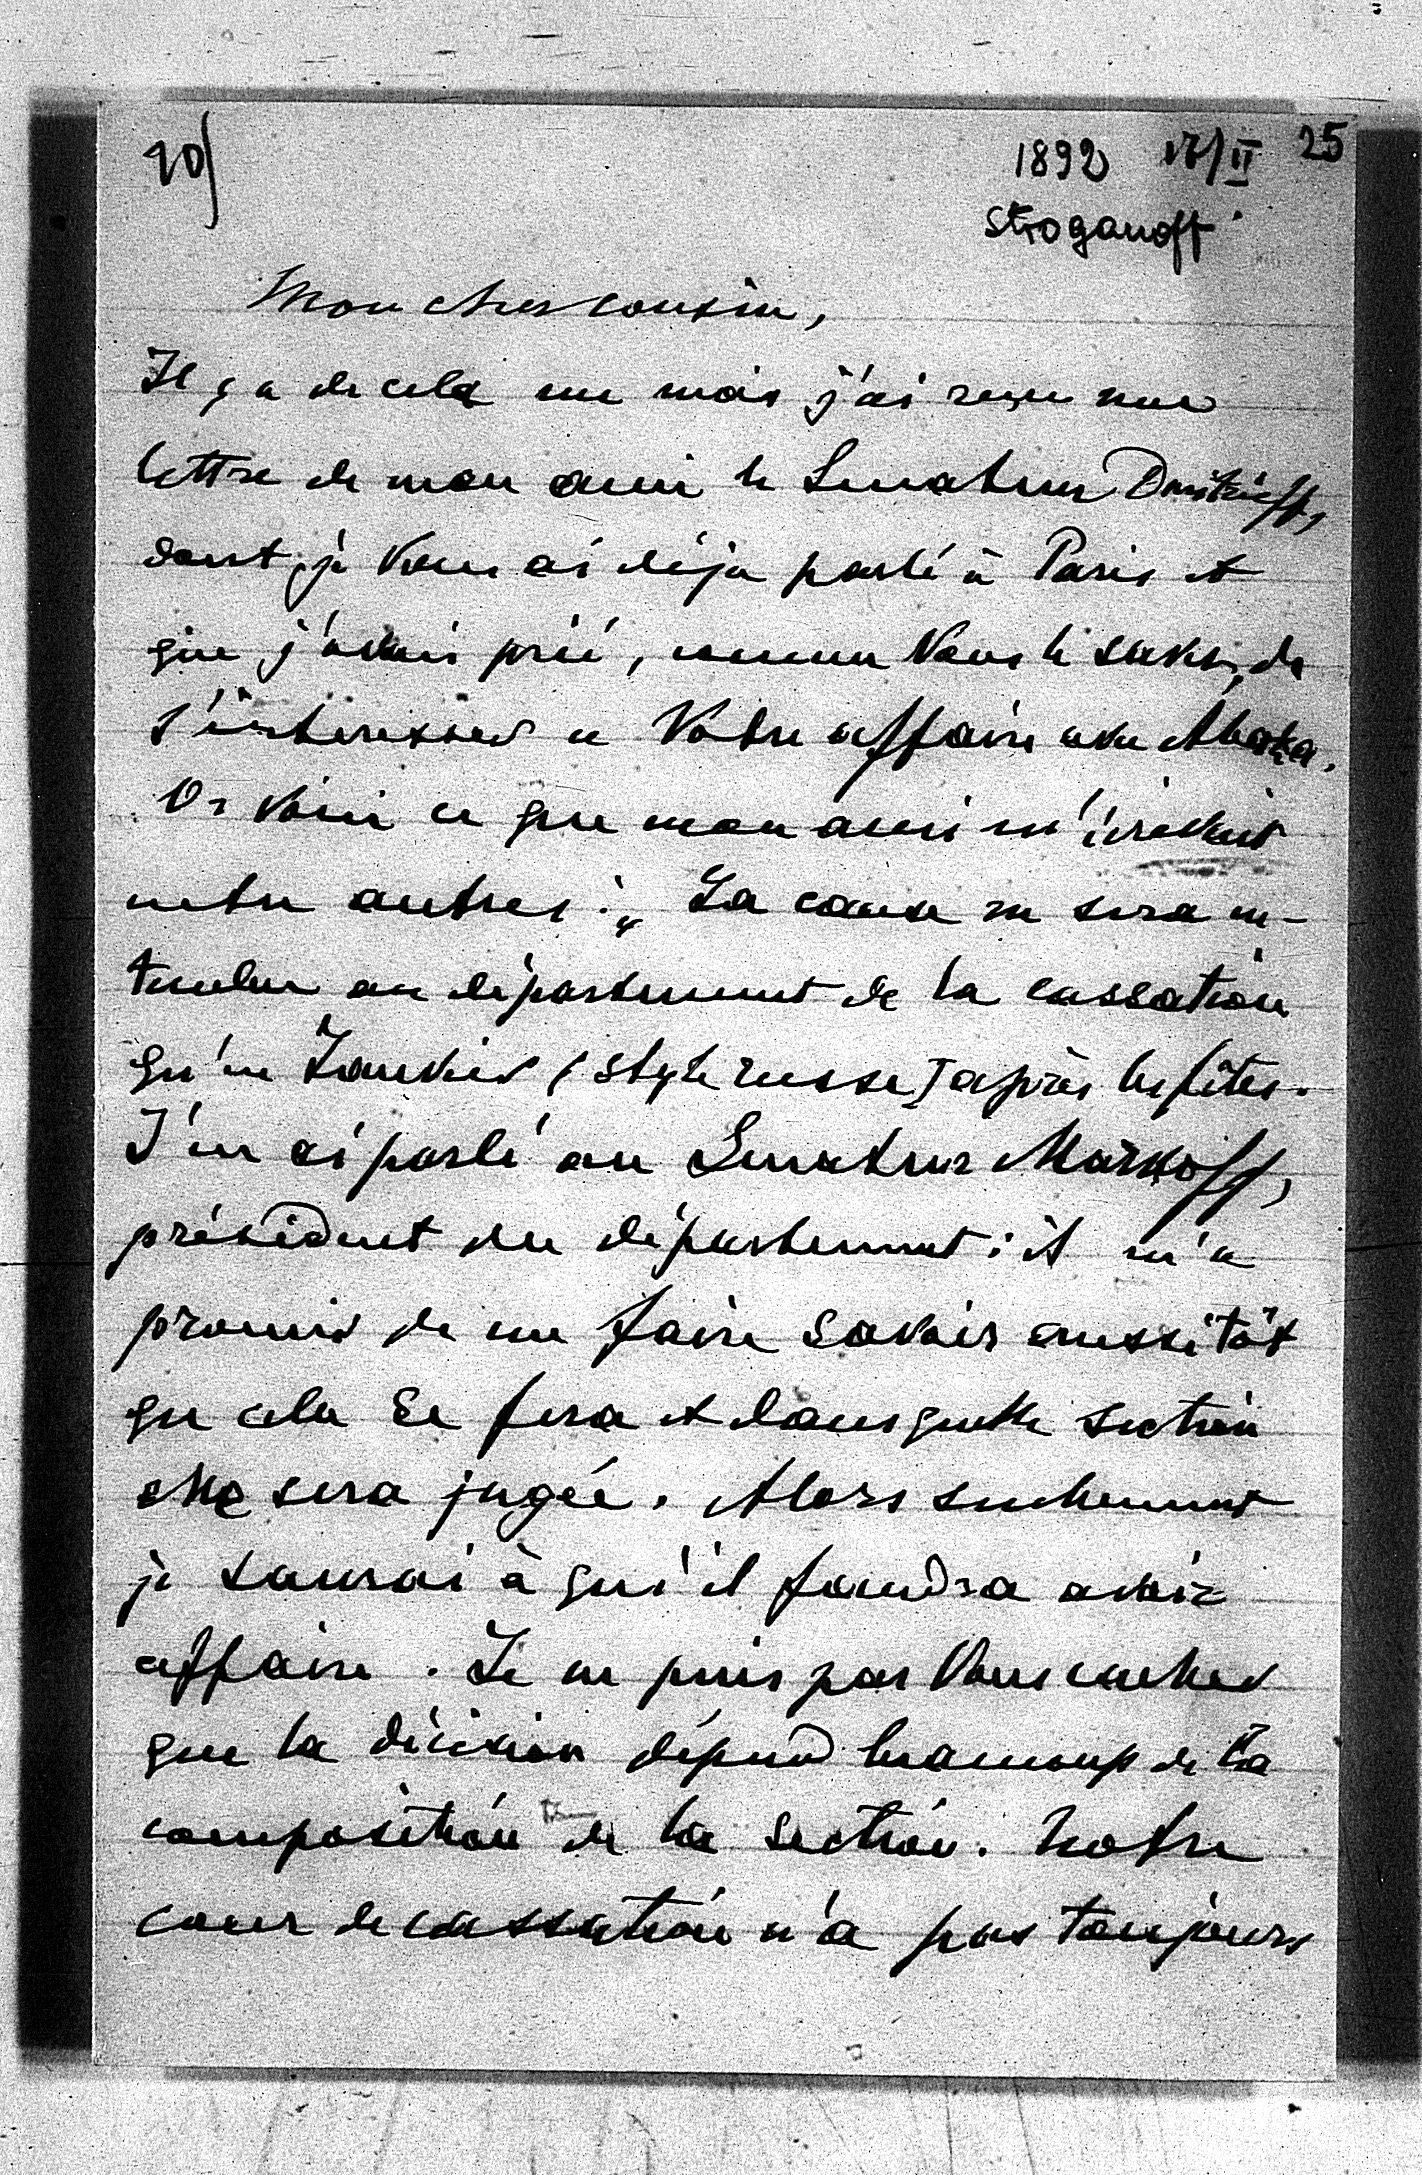 20)
1892 17/II 25
Stroganoff
Mon cher cousin,
Il y a de cela un mois j'ai reçu une
lettre de mon ami le Senateur Dmitrieff,
dont je Vous ai déja parlé à Paris et
que j'avais prié, comme Vous le savez, de
s'interesser a Votre affaire avec Abaza.
Or voici ce que mon ami m'écrivait
entre autres: „La cause ne sera en-
tendue au département de la cassation
qu'en Janvier (style russe) après les fêtes.
J'en ai parlé au Senateur Markoff,
président du département: il m'a
promis de me faire savoir aussitôt
que cela se fera et dans quelle section
elle sera jugée. Alors seulement
je saurai à qui il faudra avoir
affaire. Je ne puis pas Vous cacher
que la décision dépend beaucoup de la
composition de la section. Notre
cour de cassation n'a pas toujours